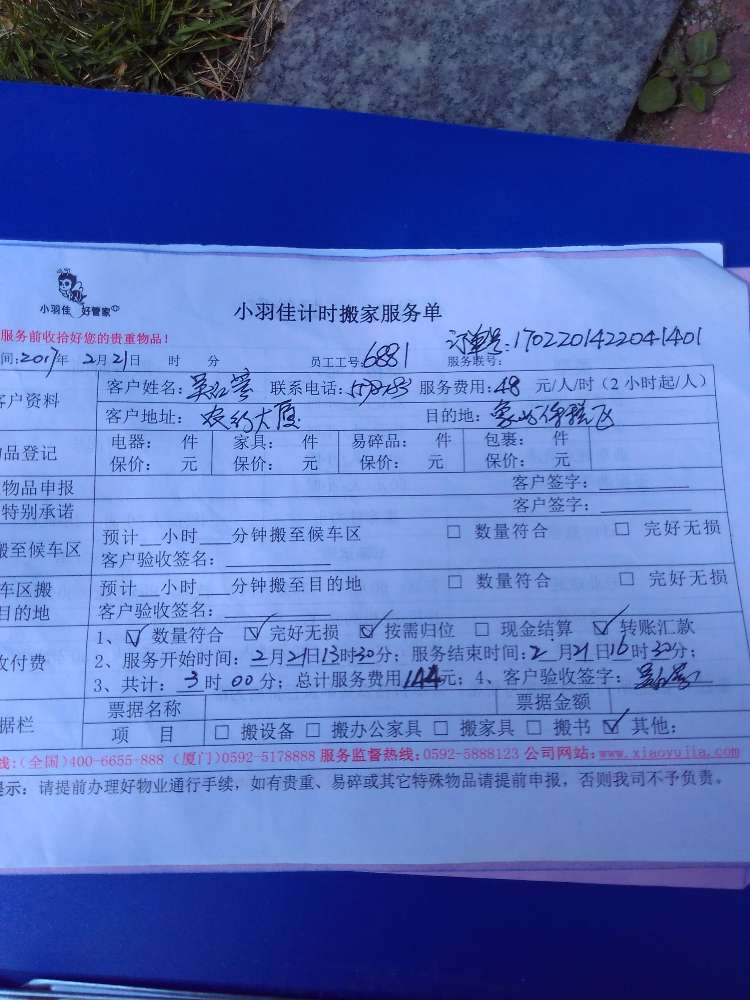 小羽佳 好管家
小羽佳计时搬家服务单
服务前收拾好您的贵重物品！
订单号:1702201422041401
间:2017年 2月21日 时 分 员工工号:6881 服务联号:
客户资料
客户姓名: 联系电话: 服务费用:48 元/人/时（2小时起/人）
客户地址: 农行大厦 目的地:
品登记
电器: 件 家具: 件 易碎品: 件 包裹: 件
保价: 元 保价: 元 保价: 元 保价: 元
物品申报 客户签字:
特别承诺 客户签字:
搬至候车区
预计__小时___分钟搬至候车区 □ 数量符合 □ 完好无损
客户验收签名:
车区搬
目的地
预计__小时___分钟搬至目的地 □ 数量符合 □ 完好无损
客户验收签名:
收付费
1、☑ 数量符合 ☑ 完好无损 ☑ 按需归位 □ 现金结算 ☑ 转账汇款
2、服务开始时间:2月21日13时30分; 服务结束时间:2月21日16时30分;
3、共计: 3时00分; 总计服务费用144元; 4、客户验收签字:
据栏
票据名称 票据金额
项 目 □ 搬设备 □ 搬办公家具 □ 搬家具 □ 搬书 ☑ 其他:
线:(全国)400-6655-888 (厦门)0592-5178888 服务监督热线:0592-5888123 公司网站:www.xiaoyujia.com
提示: 请提前办理好物业通行手续，如有贵重、易碎或其它特殊物品请提前申报，否则我司不予负责。